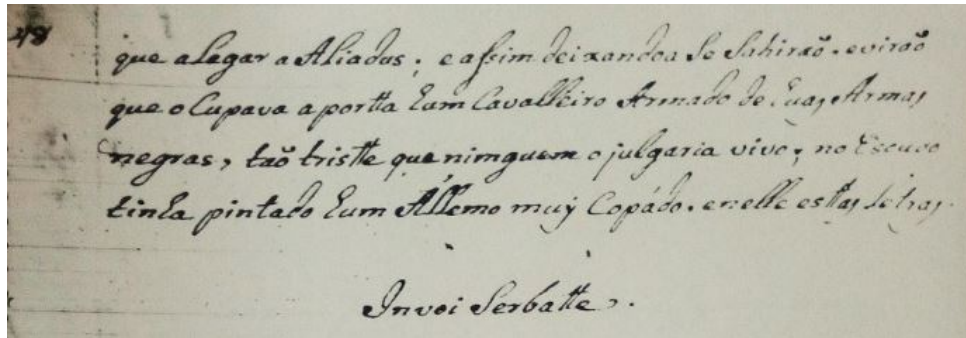 48
que alegar a Aliadus; e assim deixandoa se sahirão. evirão
que oCupava aportta hum Cavalleiro Armado de huas Armas
negras, taõ tristte que nimguem o julgaria vivo; no Escudo
tinha pintado hum Állemo muÿ Copádo. enelle esttas Letras.
Invoi Serbatte.